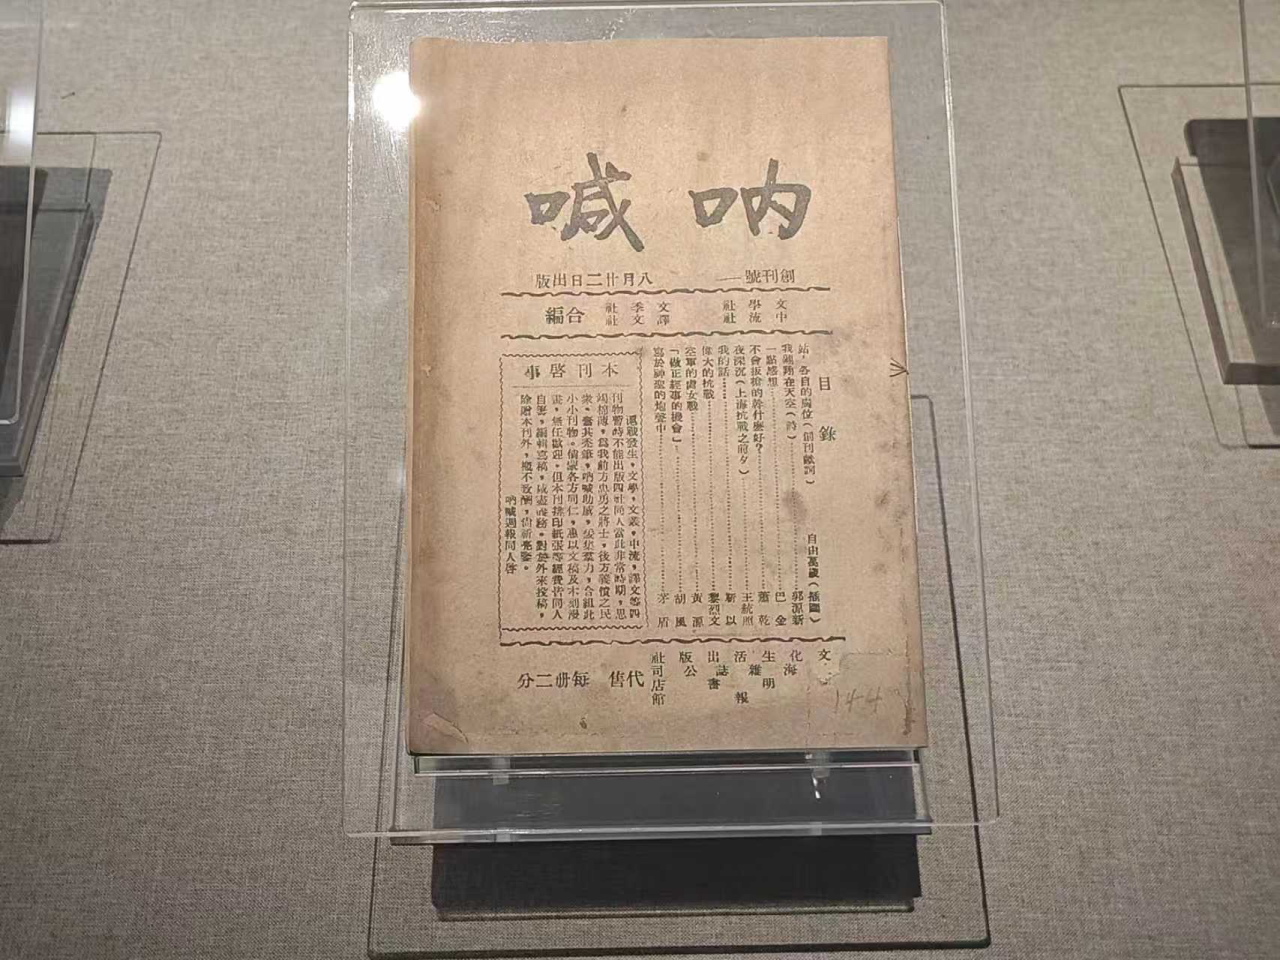 呐喊
創刊號——八月廿二日出版
文學社 中流社 文季社 譯文社 合編
目錄
站，各自的崗位（創刊獻詞）
自由萬歲（插圖）
我翱翔在天空（詩）……郭源新
一點感想……巴金
不會拔槍的幹什麽好？……蕭乾
夜深沉（上海抗戰之前夕）……王統照
我的話……靳以
偉大的抗戰……黎烈文
空軍的處女戰……黃源
「做正經事的機會」……胡風
寫於神聖的炮聲中……茅盾
本刊啓事
滬戰發生，文學，文叢，中流，譯文等四
刊物暫時不能出版四社同人當此非常時期，思
竭棉薄，爲我前方忠勇之將士，後方義憤之民
衆，奮其禿筆，吶喊助威，爰集羣力，合組此
小小刊物。倘蒙各方同仁，惠以文稿及木刻漫
畫，無任歡迎。但本刊排印紙張等經費皆同人
自籌，編輯寫稿，咸盡義務。對於外來投稿，
除贈本刊外，概不致酬，尚祈亮鑒。
吶喊週報同人啓
文化生活出版社
海雜誌公司
明書店
報館
代售 每册二分
144